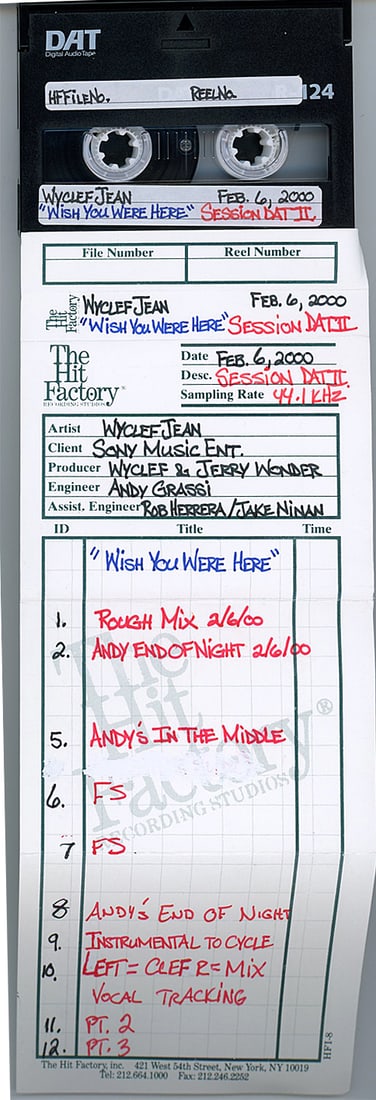 DAT
Digital Audio Tape
HF FILE NO. REEL NO. R-124
WYCLEF JEAN FEB. 6, 2000
"WISH YOU WERE HERE" SESSION DAT II.
File Number Reel Number
The Hit Factory
WYCLEF JEAN FEB. 6, 2000
"WISH YOU WERE HERE" SESSION DAT II
The
Hit
Factory®
RECORDING STUDIOS
Date FEB. 6, 2000
Desc. SESSION DAT II.
Sampling Rate 44.1 KHZ
Artist WYCLEF JEAN
Client SONY MUSIC ENT.
Producer WYCLEF & JERRY WONDER
Engineer ANDY GRASSI
Assist. Engineer ROB HERRERA / JAKE NINAN
ID Title Time
"WISH YOU WERE HERE"
1. ROUGH MIX 2/6/00
2. ANDY END OF NIGHT 2/6/00
The
Hit
Factory®
RECORDING STUDIOS
5. ANDY'S IN THE MIDDLE
6. FS
7 FS
8 ANDY'S END OF NIGHT
9. INSTRUMENTAL TO CYCLE
10. LEFT = CLEF R = MIX
VOCAL TRACKING
11. PT. 2
12. PT. 3
HFI-8
The Hit Factory, inc. 421 West 54th Street, New York, NY 10019
Tel: 212.664.1000 Fax: 212.246.2252